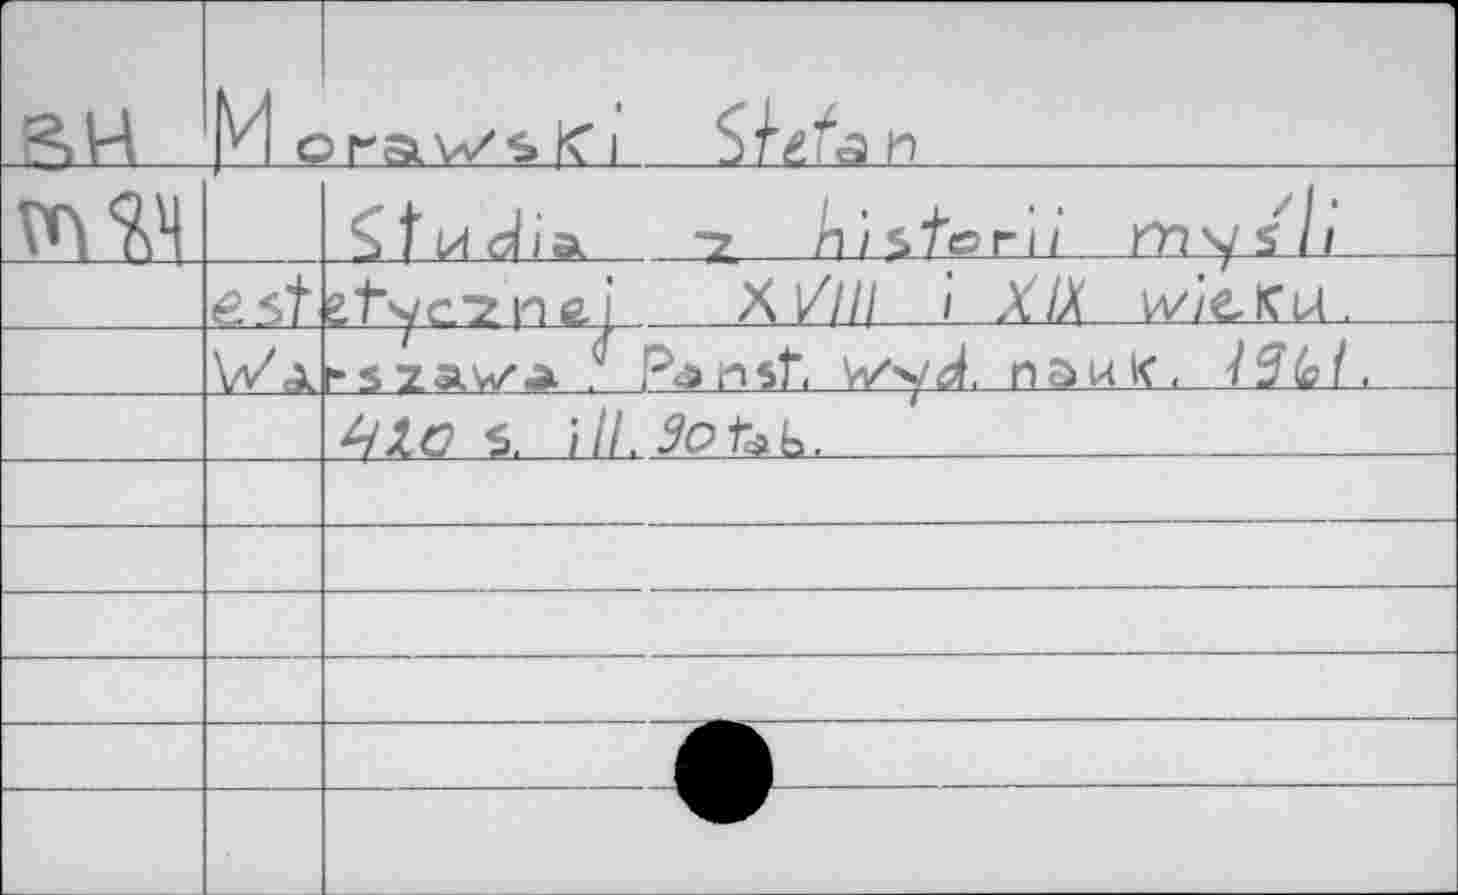 BH Morawski Stefan
m84 Studia z historii myśli
estetycznej XVIII i XIX wieku.
Warszawa, Panst. Wyd. nauk. 1961.
420 s. ill. 30 tab.